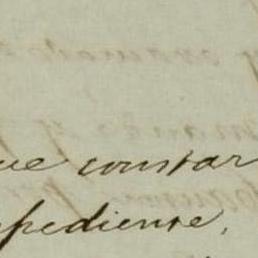 ue constar
pediente,